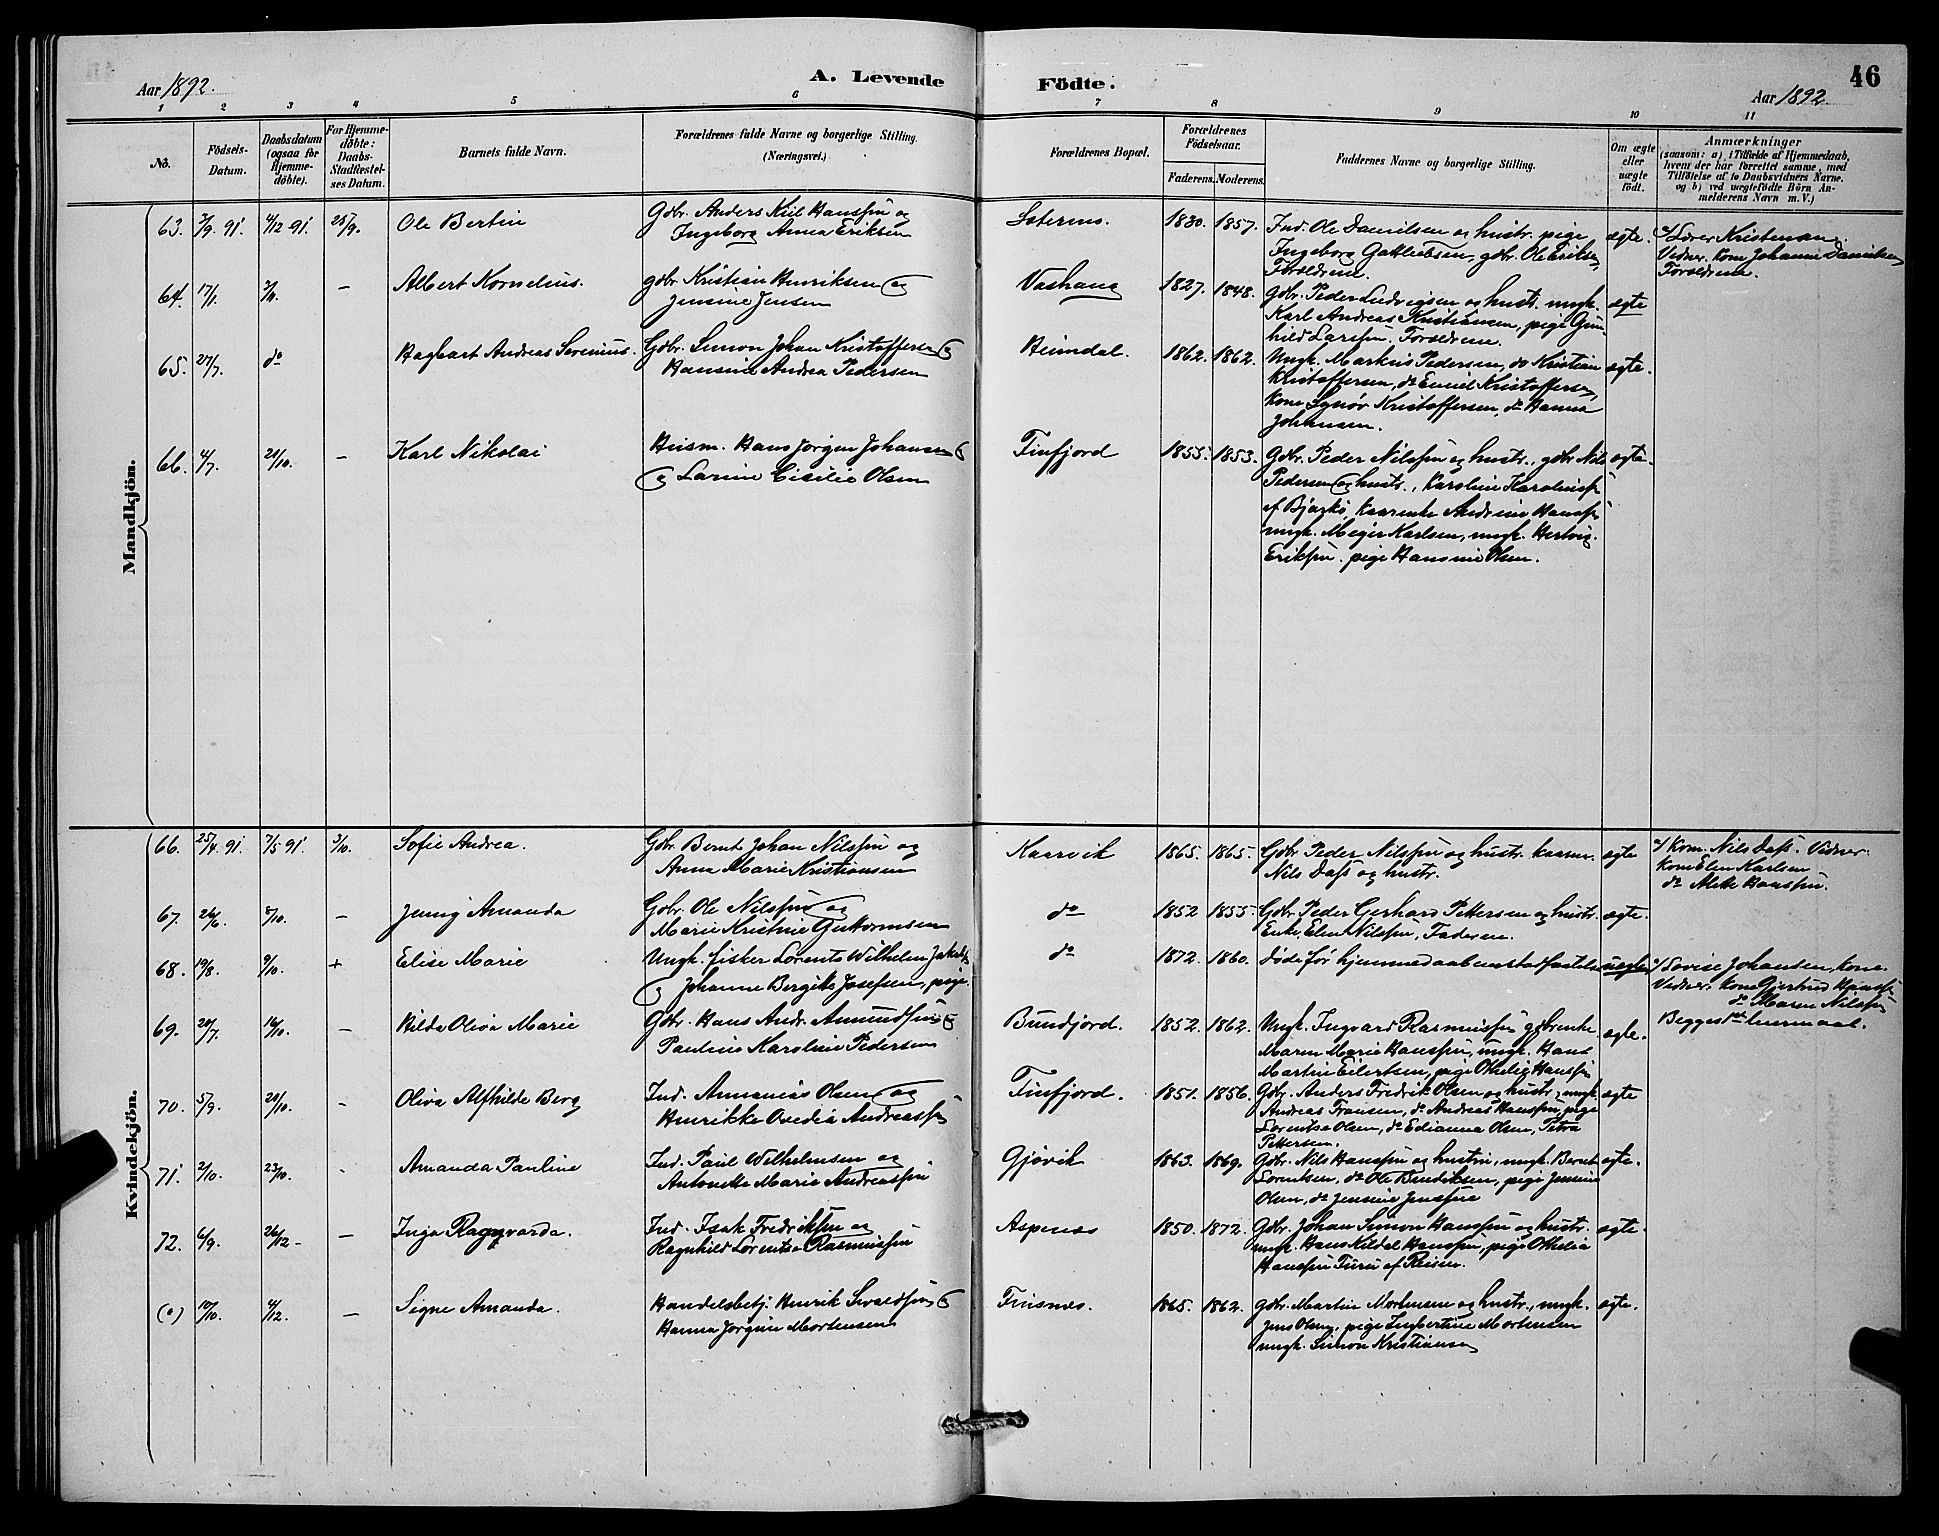 46
Aar 1892.
A. Levende
Födte.
Aar 1892
1 2 3 4 5 6 7 8 9 10 11
No.
Födsels-
Datum.
Daabsdatum
(ogsaa for
Hjemme-
döbte).
For Hjemme-
döbte:
Daabs-
Stadfæstel-
ses Datum.
Barnets fulde Navn.
Forældrenes fulde Navne og borgerlige Stilling.
(Næringsvei.)
Forældrenes Bopæl.
Forældrenes
Födselsaar.
Faderens. Moderens.
Faddernes Navne og borgerlige Stilling.
Om ægte
eller
uægte
födt.
Anmærkninger
(saasom: a) i Tilfælde af Hjemmedaab,
hvem der har forrettet samme, med
Tilföielse af to Daabsvidners Navne.
og b) ved uægtefödte Börn An-
melderens Navn m. V.)
Mandkjön.
63. 3/9. 91. 4/12 91. 25/9. Ole Bertin
Gdbr. Anders Kiil Hanssen og
Ingeborg Anna Eriksen
1830. 1857.
Ind. Ole Danielsen og hustr. pige
Ingeborg Gabrielsen, gdbr. Ole Eriksen,
Forældrene.
ægte.
Lærer Kristensen
Vidner. Kone Johanne Danielsen
Forældrene.
64. 17/1. – Albert Kornelius.
gdbr Kristian Henriksen og
Jensine Jensen
Vashaug
1827. 1848.
Gdbr. Peder Ludvigsen og hustr. ungk.
Karl Andreas Kristiansen, pige Gun-
hild Larssen. Forældrene.
ægte
65. 27/7. do Hagbart Andreas Serenius.
Gdbr. Simon Johan Kristoffersen og
Hansine Andrea Pedersen
Heimdal.
1862. 1862.
Ungk. Markus Pedersen, do Kristian
Kristoffersen, do Emiel Kristoffersen,
kone Synør Kristoffersen, do Hanna
Johansen.
ægte.
66. 4/7. 20/10. – Karl Nikolai
Husm. Hans Jørgen Johansen
og Larine Cisilie Olsen
Finfjord
1855. 1853.
Gdbr. Peder Nilssen og hustr., gdbr Nils
Pedersen og hustr., Karoline Karolius
af Bjarkø, kaarenke Andrine Hanss
ungk. Meyer Karlsen, ungk. Hertvig
Erikssen. pige Hansine Olsen.
ægte.
Kvindekjön.
66. 25/4. 91. 7/5 91. 3/10. Sofie Andrea.
Gdbr. Bernt Johan Nilssen og
Anna Marie Kristiansen
Kaarvik
1865. 1865.
Gdbr Peder Nilssen og hustr. kaarm.
Nils Dass og hustr.
ægte
Kone Nils Dass. Vidner.
Kone Elen Karlsen
do Alette Hanssen.
67. 26/6. 8/10. – Jenny Amanda
Gdbr. Ole Nilssen og
Marie Kristine Guttormsen
do
1852 1855.
Gdbr. Peder Gerhard Pettersen og hustr.
Enke, Elen Nilssen, Faderen.
ægte.
68. 19/8. 9/10. + Elise Marie
Ungk. fisker Lorents Wilhelm Jakobs
og Johanne Bergitte Josefsen, pige
do
1872. 1860.
døde før hjemmedaaben stadfæstelse
uægte
Lovise Johansen, kone.
Vidner. kone Gjertrud Hanss
do Maren Nilssen
Begges 1st leiermaal.
69. 20/7. 16/10. – Hilda Oliva Marie
Gdbr. Hans Andr. Amundsen og
Pauline Karoline Pedersen
Bundjord.
1852. 1862.
Ungk. Ingvard Rasmussen gdbrenke
Maren Marie Hanssen, ungk. Hans
Martin Eilertsen, pige Othelie Hanssen
ægte.
70. 5/9. 20/10. – Oliva Alfhilde Berg
Ind. Annanias Olsen og
Henrikke Ovedia Andreass
Finfjord.
1851. 1856.
Gdbr. Anders Fredrik Olsen og hustr, ungk
Andreas Fransen, do Andreas Hanssen, pige
Lorentse Olsen, do Edianna Olsen, Petra
Pettersen.
ægte
71. 2/10. 23/10. Amanda Pauline
Ind. Paul Wilhelmsen og
Antonette Marie Andreassen
Gjøvik
1863. 1869.
Gdbr. Nils Hanssen og hustru, ungk. Bernt
Lorentsen, do Ole Bendiksen, pige Jensine
Olsen, do Jensine Jenssen
ægte.
72. 6/9. 26/12 – Inga Ragnvarda.
Ind. Isak Fredriksen og
Ragnhild Lorentse Rasmussen
Aspenes
1850. 1872.
Gdbr. Johan Simon Hanssen og hustr.
ungk. Hans Kildal Hanssen, pige Othelia
Hanssen Turu af Reisen.
ægte.
(0) 10/10. 4/12. – Signe Amanda.
Handelsbetj. Henrik Sivaldsen og
Hanna Jørgine Mortensen
Finsnes.
1865. 1862.
gdbr. Martin Mortensen og hustr., ungk.
Jens Olsen, pige Ingbertine Mortensen
ungk. Simon Kristiansen
ægte.